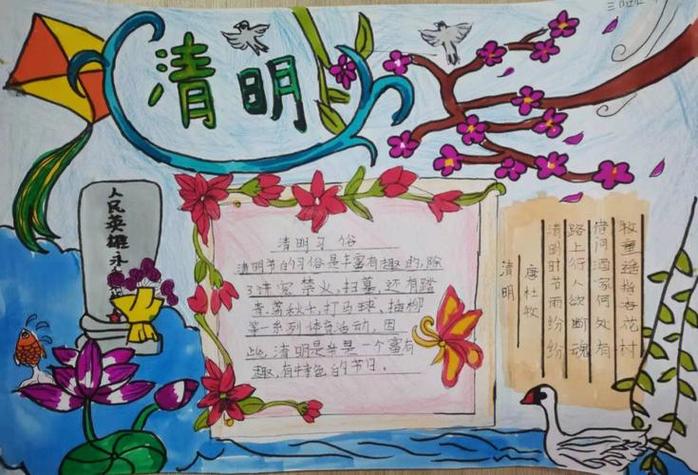 清明
人民英雄永
清明习俗
清明节的习俗是丰富有趣的,除
了讲究禁火,扫墓,还有踏
青,荡秋千,打马球,插柳
等一系列体育运动,因
此,清明是
一个富有
趣,有特色的节日。
清明
唐杜牧
清明时节雨纷纷
路上行人欲断魂
借问酒家何处有
牧童遥指杏花村